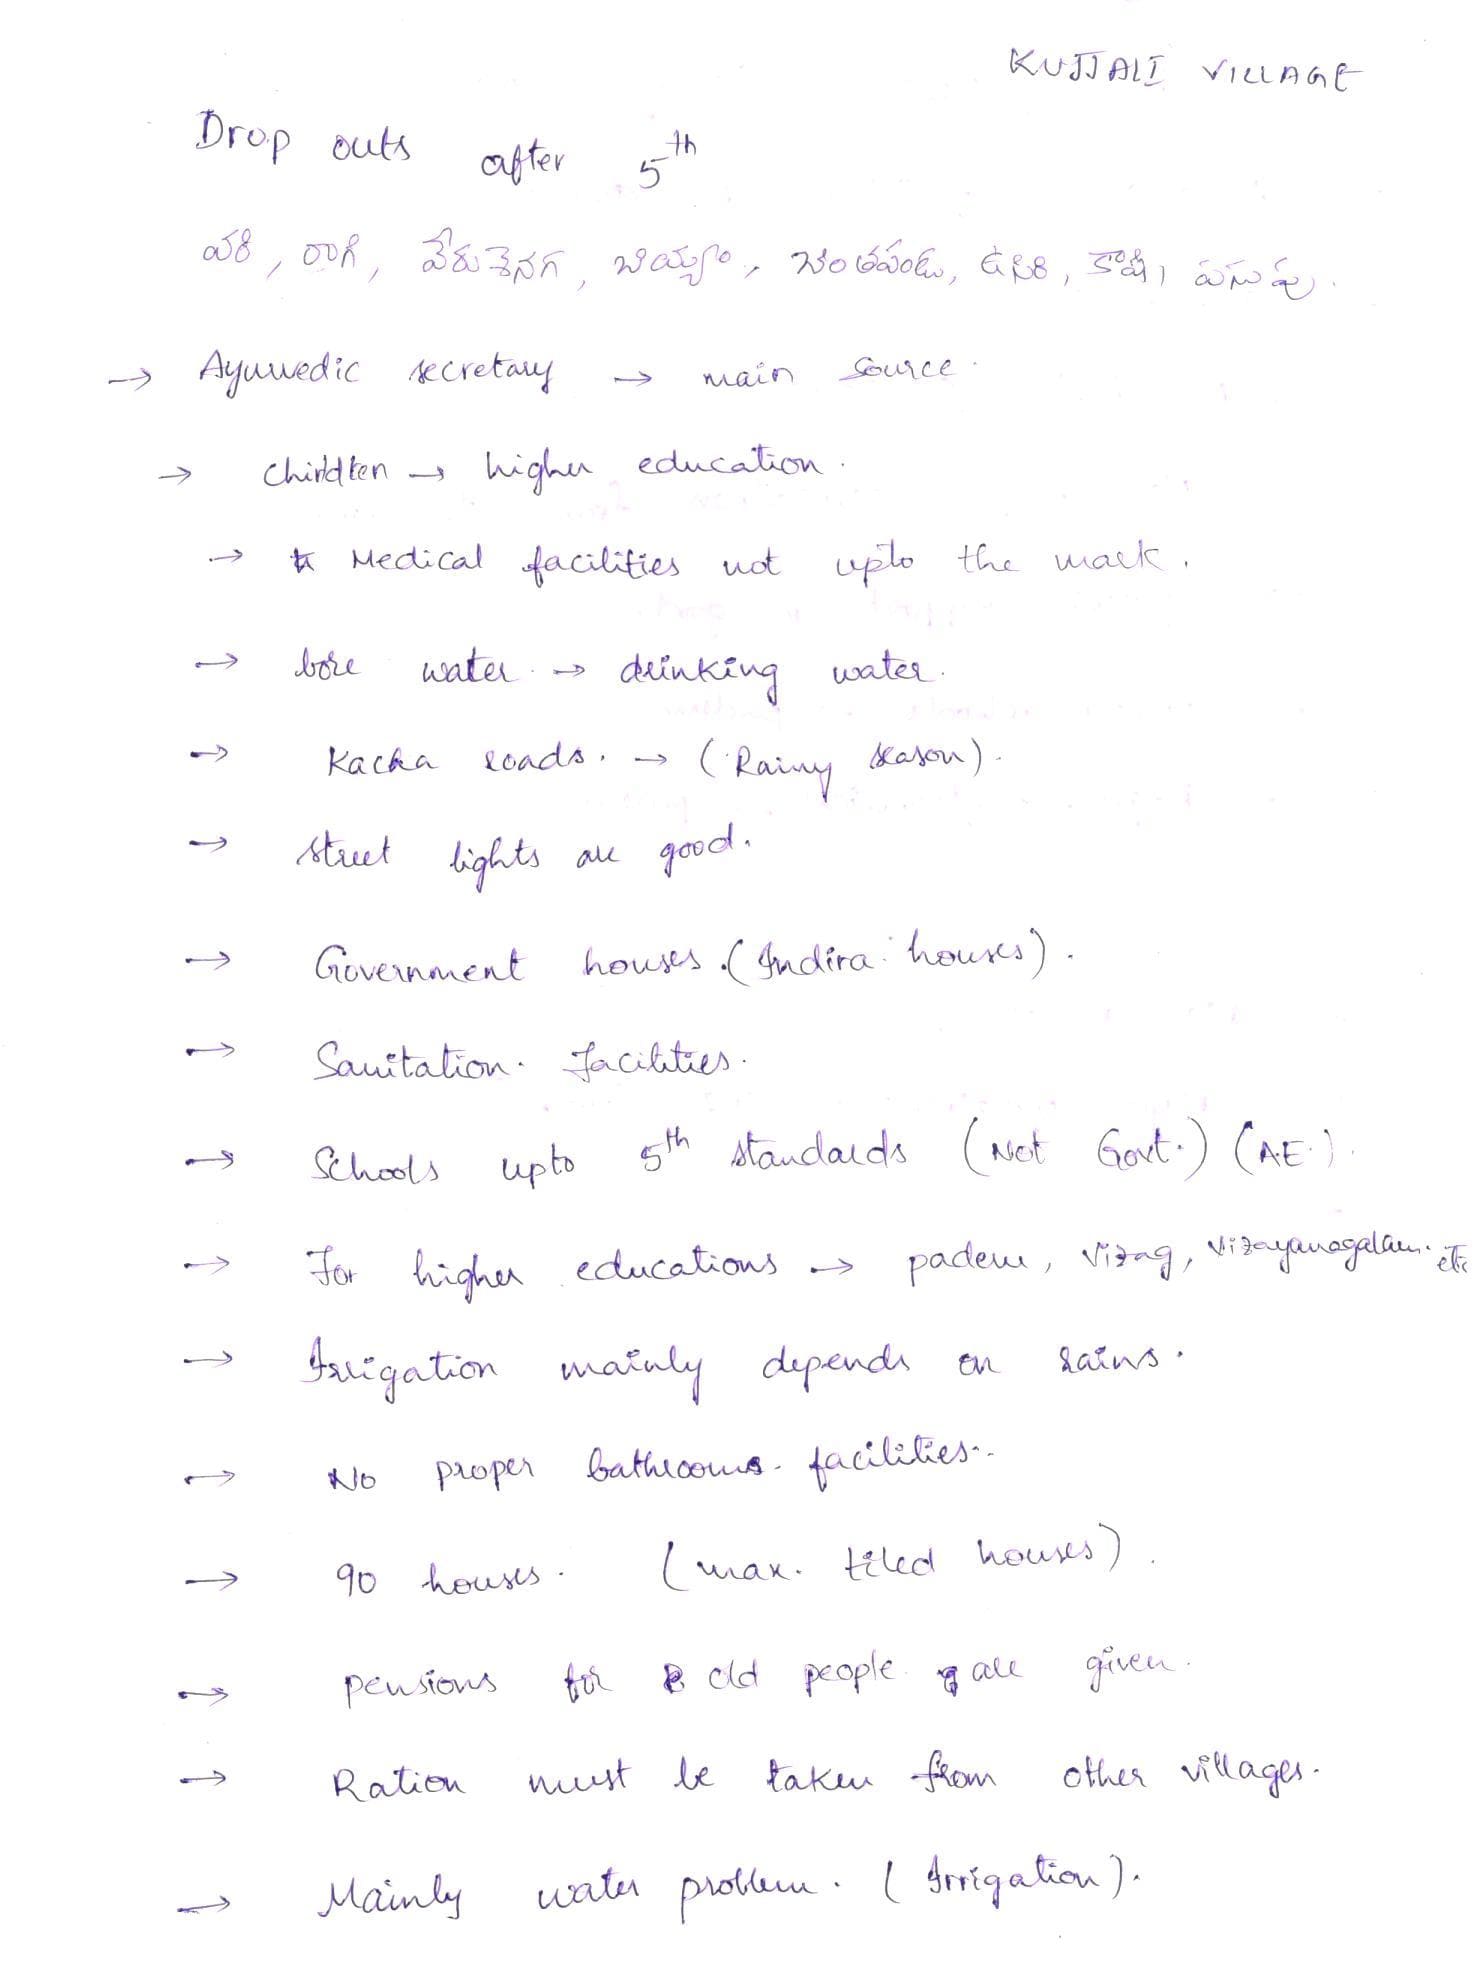 KUJJALI VILLAGE
Drop outs after 5th
వరి, రాగి, వేరుశెనగ, బియ్యం, చింతపండు, ఉసిరి, కాఫీ, పసుపు.
→ Ayurvedic secretary → main source.
→ children → higher education.
→ Medical facilities not upto the mark.
→ bore water → drinking water.
→ Kacha roads. → (Rainy season).
→ street lights are good.
→ Government houses. (Indira houses).
→ Sanitation. facilities.
→ Schools upto 5th standards (Not Govt.) (A.E.).
→ For higher educations → paderu, vizag, vizayanagalam. etc
→ Irrigation mainly depends on rains.
→ No proper bathrooms. facilities..
→ 90 houses. (max. tiled houses).
→ pensions for old people are given.
→ Ration must be taken from other villages.
→ Mainly water problem. (Irrigation).